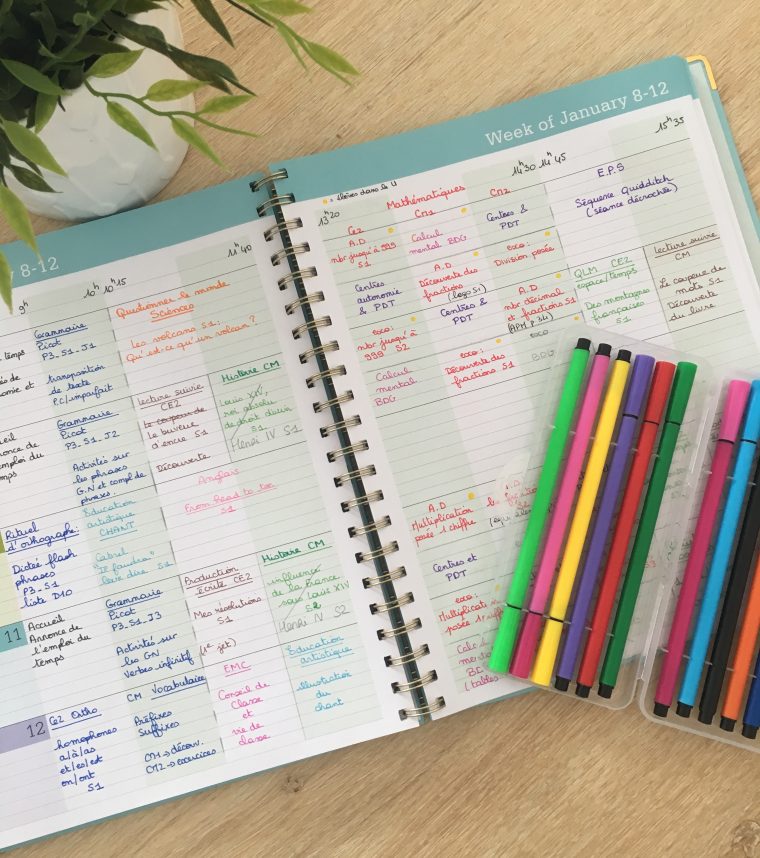 8-12
9h
10h 10h15
11h40
temps
Grammaire
Picot
P3_S1_J1
transposition
de texte
P.C/imparfait
Questionner le monde
Sciences
Les volcans S1:
Qu'est-ce qu'un volcan?
Annonce de
emploi du
Grammaire
Picot
P3_S1_J2
Activités sur
les phrases
G.N et compl de
phrases.
lecture suivie
CE2
le buveur
d'encre S1
Découverte
Histoire CM
Louis XIV,
roi absolu
de droit divin
S1
Henri IV S1
Rituel
d'orthographe:
Dictée flash
phrases
P3_S1
liste D10
Education
artistique
CHANT
"Il faudra"
S1
Anglais
From head to toe
S1
11
Accueil
Annonce de
l'emploi du
temps
Grammaire
Picot
P3_S1_J3
Activités sur
les GN
Verbes infinitif
Production
écrite CE2
Mes résolutions
S1
(1er jet)
Histoire CM
influence
de la France
sous Louis XIV
S2
Henri IV S2
12
CE2 Ortho
homophones
a/à/as
et/es/est
on/ont
S1
CM Vocabulaire
Préfixes
Suffixes
CM1→découv.
CM2→exercices
EMC
Conseil de
Classe
et
vie de
classe
Education
artistique
illustration
du
chant
Week of January 8-12
13h20
14h30 14h45
15h35
Mathématiques
CE2
CM1
CM2
A.D
nbr jusqu'à 999
S1
Calcul
mental BDG
Centres &
PDT
E.P.S
Séquence Quidditch
(séance décrochée)
Centres
autonomie
& PDT
A.D
Découverte des
fractions
(Lego S1)
exco:
Division posée
exco:
nbr jusqu'à
999 S2
Centres &
PDT
A.D
nbr décimal
et fractions S1
QLM CE2
espace/temps
Des montagnes
françaises
S1
lecture suivie
CM
Le coupeur de
mots S1
Découverte
du livre
Calcul
mental
BDG
exco:
Découverte des
fractions S1
BDG
A.D
Multiplication
posée 1 chiffre
Centres et
PDT
exco:
(tables